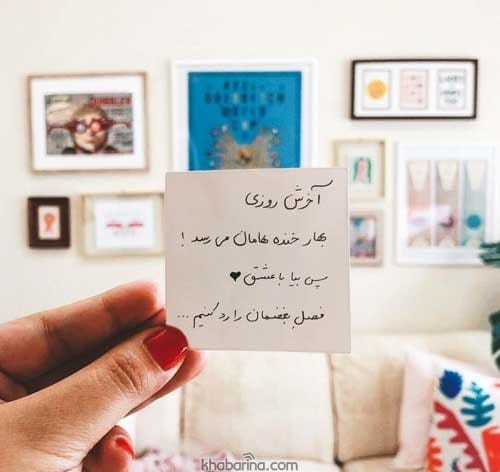 آخرش روزی
بهار خنده هامان می رسد !
پس بیا با عشق ♥
فصل بغضمان را رد کنیم ...
khabarina.com